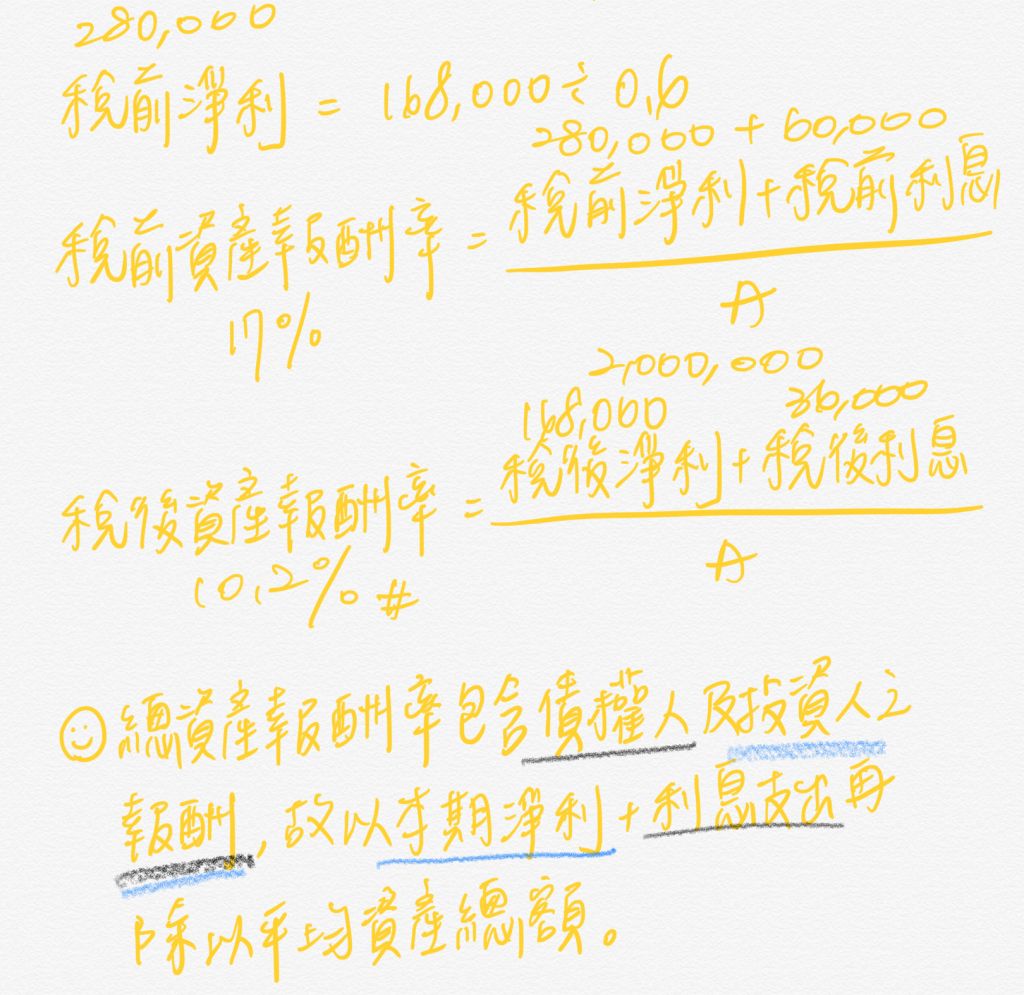 280,000
稅前淨利 = 168,000 ÷ 0.6
280,000 + 60,000
稅前資產報酬率 = 稅前淨利+稅前利息
A
17%
2,000,000
168,000 36,000
稅後資產報酬率 = 稅後淨利+稅後利息
A
10.2% #
總資產報酬率包含債權人及投資人之
報酬,故以本期淨利+利息支出再
除以平均資產總額。